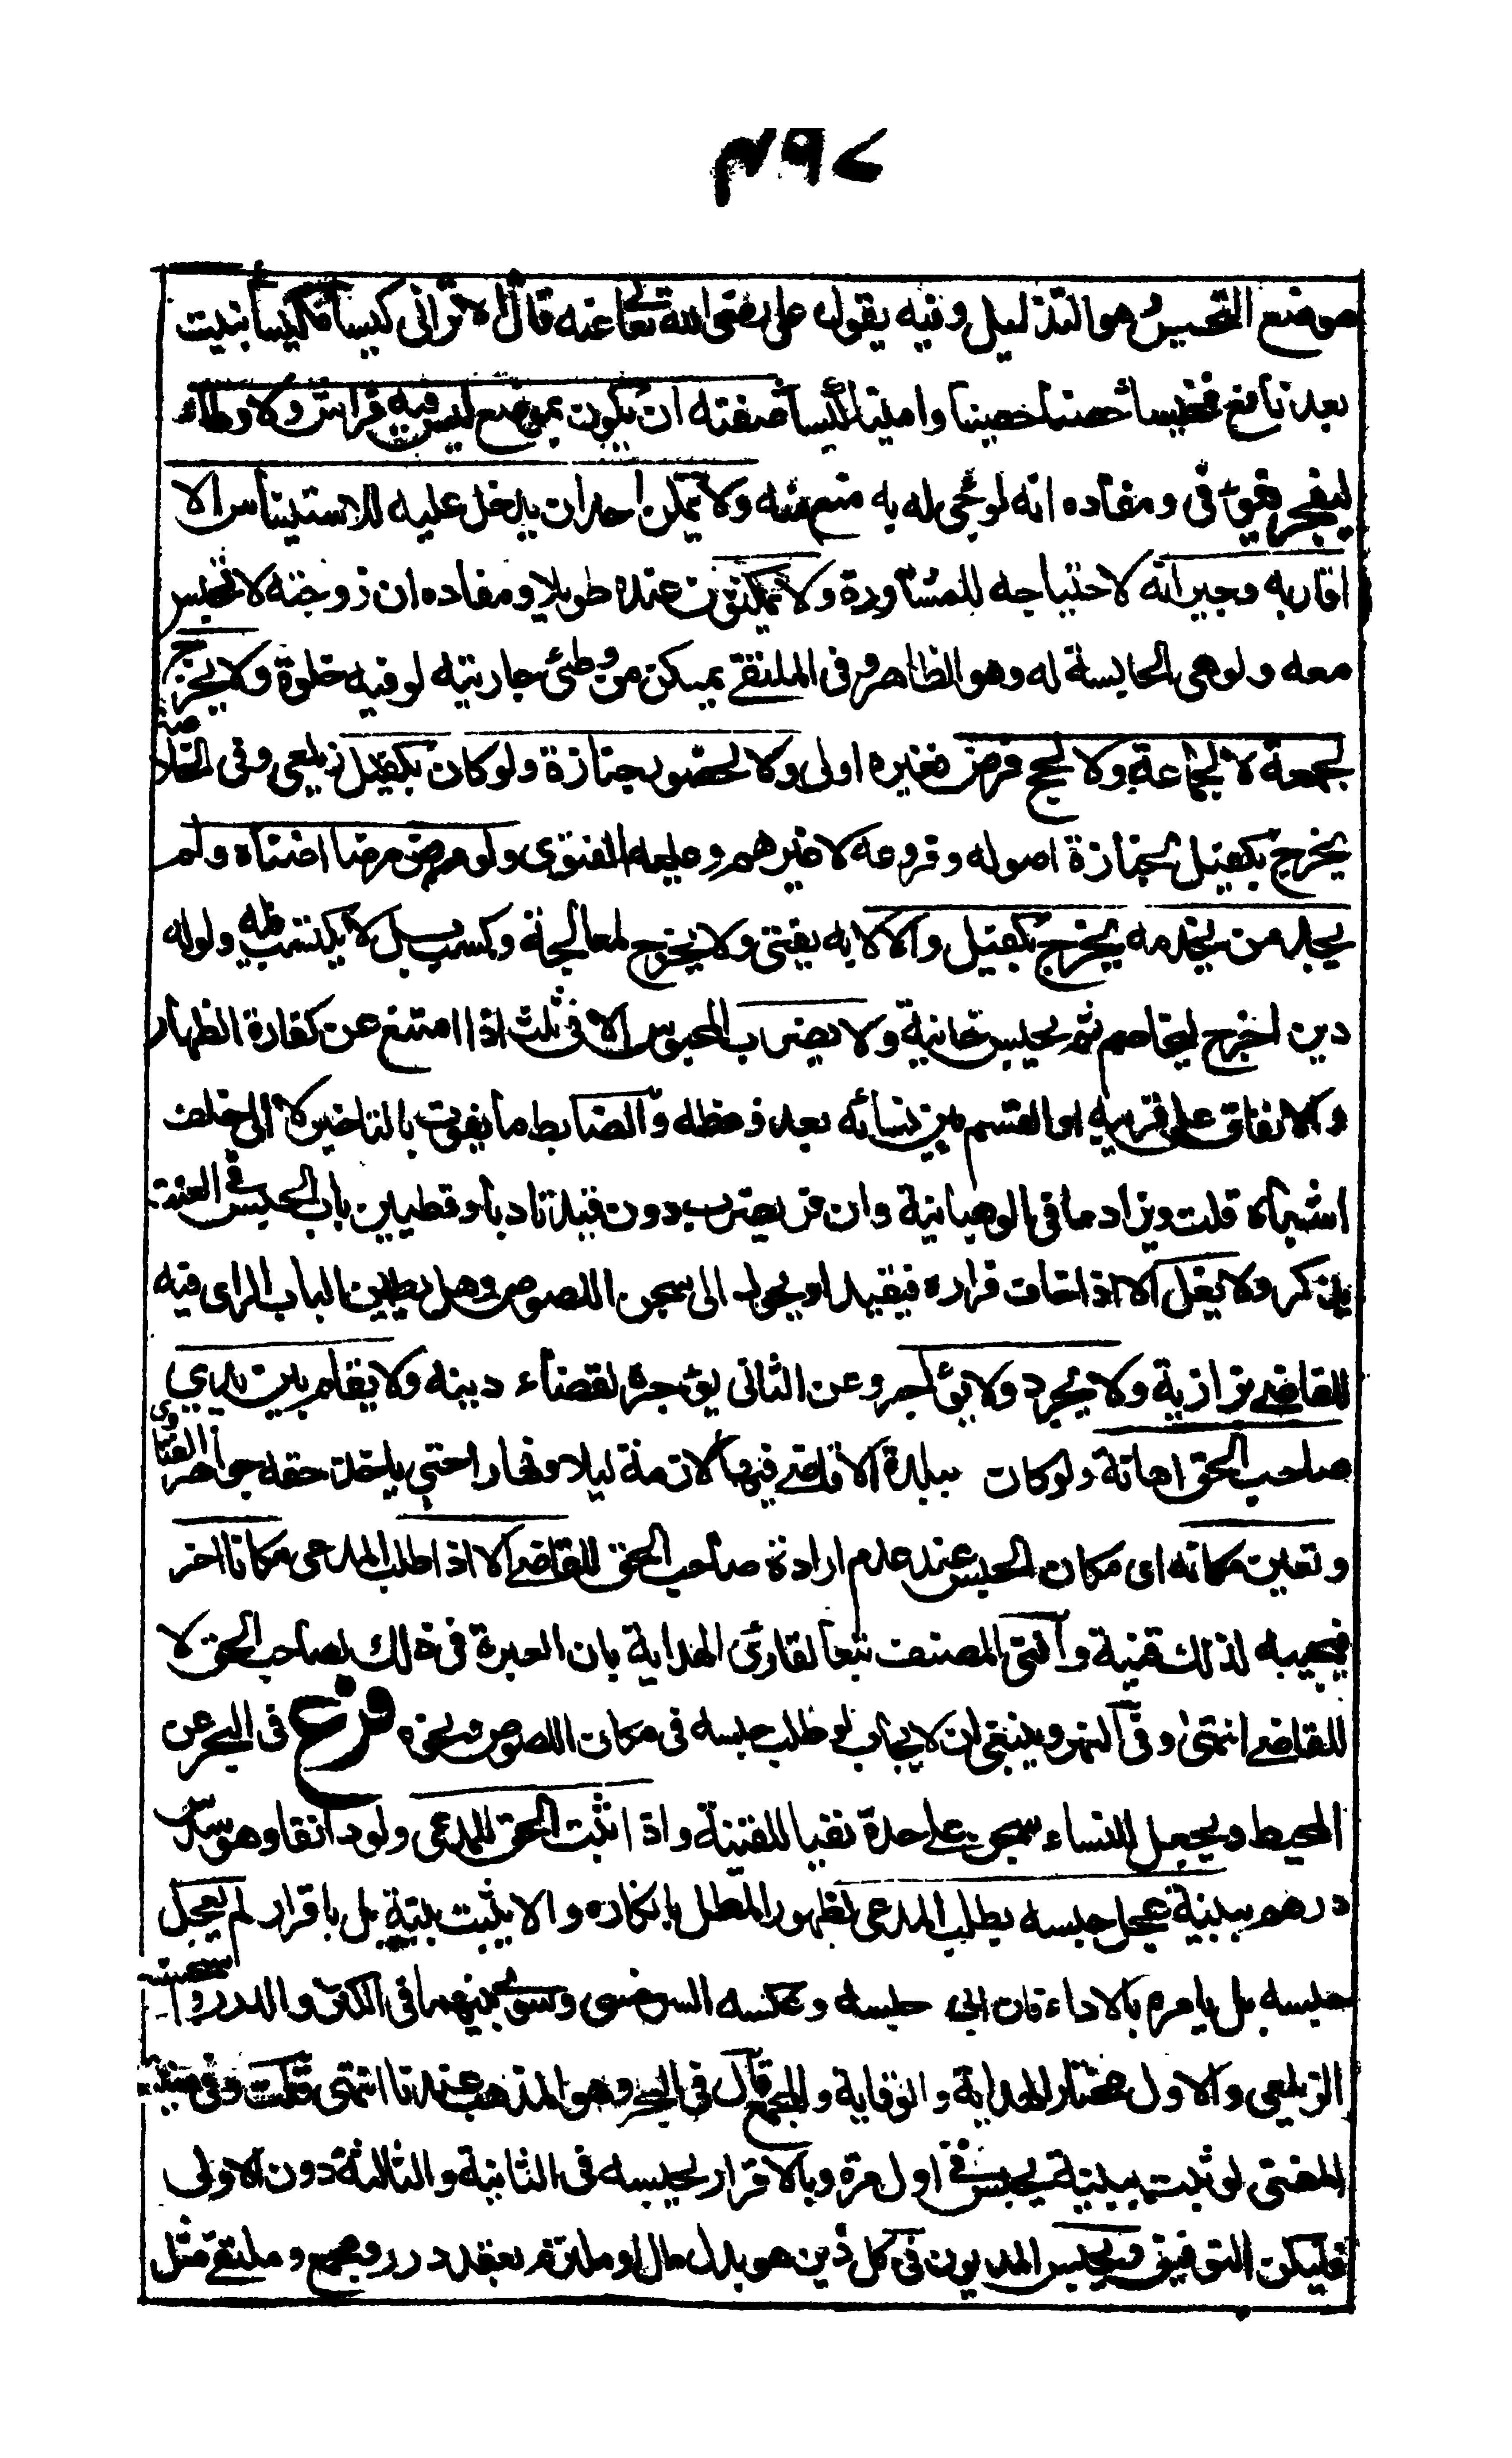 ٢٩٤
موضع التخييس هو التذليل وفيه يقول على رضى الله تعا عنه قال الا ترانى كيسا مكيسا بنيت
بعد نافع مخيسا حصنا حصينا وامينا كيسا صفته ان يكون بموضع ليس فيه فراش ولا وطاء
ليضجر فيوفى ومفاده انه لو جئ له به منع منه ولا يمكن احدا ان يدخل عليه للاستيناس الا
اقاربه وجيرانه لاحتياجه للمشاورة ولا يمكثون عنده طويلا ومفاده ان زوجته لا تحبس
معه ولو هى الحابسة له وهو الظاهر وفى الملتقى يمكن من وطئ جاريته لو فيه خلوة ولا يخرج
لجمعة ولا جماعة ولا لحج فرض فغيره اولى ولا لحضور جنازة ولو كان بكفيل زيلعى وفى الخلاصة
يخرج بكفيل لجنازة اصوله وفروعه لا غيرهم وعليه الفتوى ولو مرض مرضا اضناه ولم
يجد من يخدمه يخرج بكفيل والا لا به يفتى ولا يخرج لمعالجة وكسب بل لا يكتسب فيه ولو له
دين اخرج ليخاصم ثم يحبس خانية ولا يضرب المحبوس الا فى ثلث اذا امتنع عن كفارة الظهار
والانفاق على قريبه او القسم بين نسائه بعد وعظه والضابط ما يفوت بالتاخير لا الى خلف
اشباه قلت ويزاد ما فى الوهبانية وان فر يضرب دون قيد تادبا وتطيين باب الحبس فى العنت
يذكر ولا يغل الا اذا خاف فراره فيقيد او يحول الى سجن اللصوص وهل يطين الباب الراى فيه
للقاضى بزازية ولا يجرد ولا يؤاجر وعن الثانى يؤجره لقضاء دينه ولا يقام بين يدي
صاحب الحق اهانة ولو كان ببلدة لا قاضى فيها لازمه ليلا ونهارا حتى ياخذ حقه جواهر الفتاوى
وتعيين مكانه اى مكان الحبس عند عدم ارادة صاحب الحق للقاضى الا اذا طلب المدعى مكانا اخر
فيجيبه لذلك قنية وافتى المصنف تبعا لقارئ الهداية بان العبرة فى ذلك لصاحب الحق لا
للقاضى انتهى وفى النهر وينبغى ان لا يجاب لو طلب حبسه فى مكان اللصوص ونحوه فرع فى البحر عن
المحيط ويجعل للنساء سجن على حدة نفيا للفتنة واذا اثبت الحق للمدعى ولو دانقا وهو سدس
درهم ببينة عجل حبسه بطلب المدعى لظهور المطل بانكاره والا يثبت ببينة بل باقرار لم يعجل
حبسه بل يامره بالاداء فان ابى حبسه وعكسه السرخسى وسوى بينهما فى الكنز والدرر واستحسنه
الزيلعى والاول مختار الهداية والوقاية والمجمع قال فى البحر وهو المذهب عندنا انتهى قلت وفى منية
المفتى لو ثبت ببينة يحبس فى اول مرة وبالاقرار يحبسه فى الثانية والثالثة دون الاولى
فليكن التوفيق ويحبس المديون فى كل دين هو بدل مال او ملتزم بعقد درر ومجمع وملتقى مثل